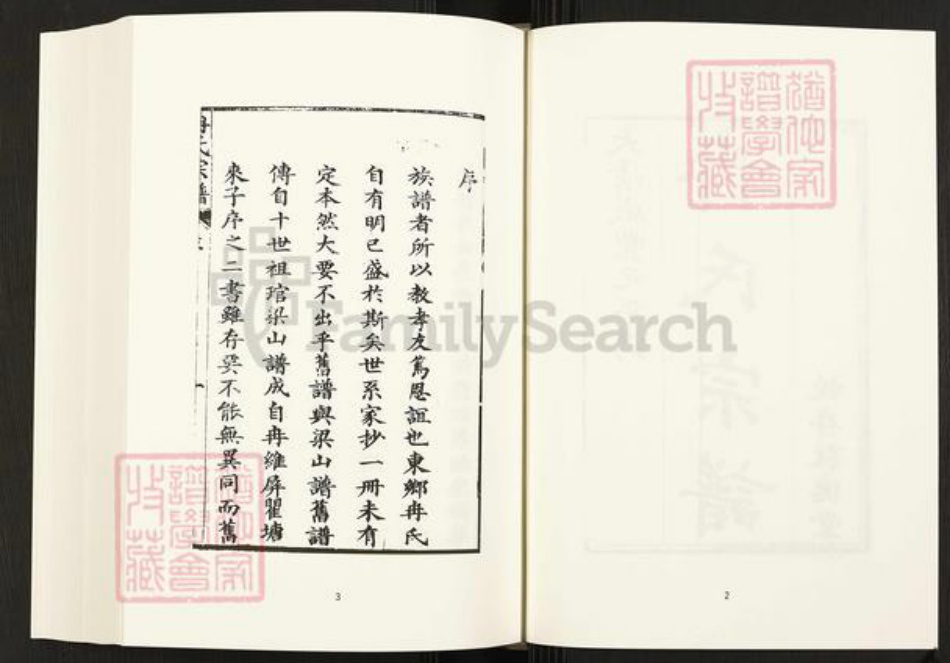 猶他家
譜學會
收藏
2
序
族譜者所以教孝友篤恩誼也東鄉冉氏
自有明已盛於斯矣世系家抄一冊未有
定本然大要不出乎舊譜與梁山譜舊譜
傳自十世祖琯梁山譜成自冉維屏瞿塘
來子序之二書雖存與不能無異同而舊
冉氏宗譜
一
猶他家
譜學會
收藏
3
FamilySearch